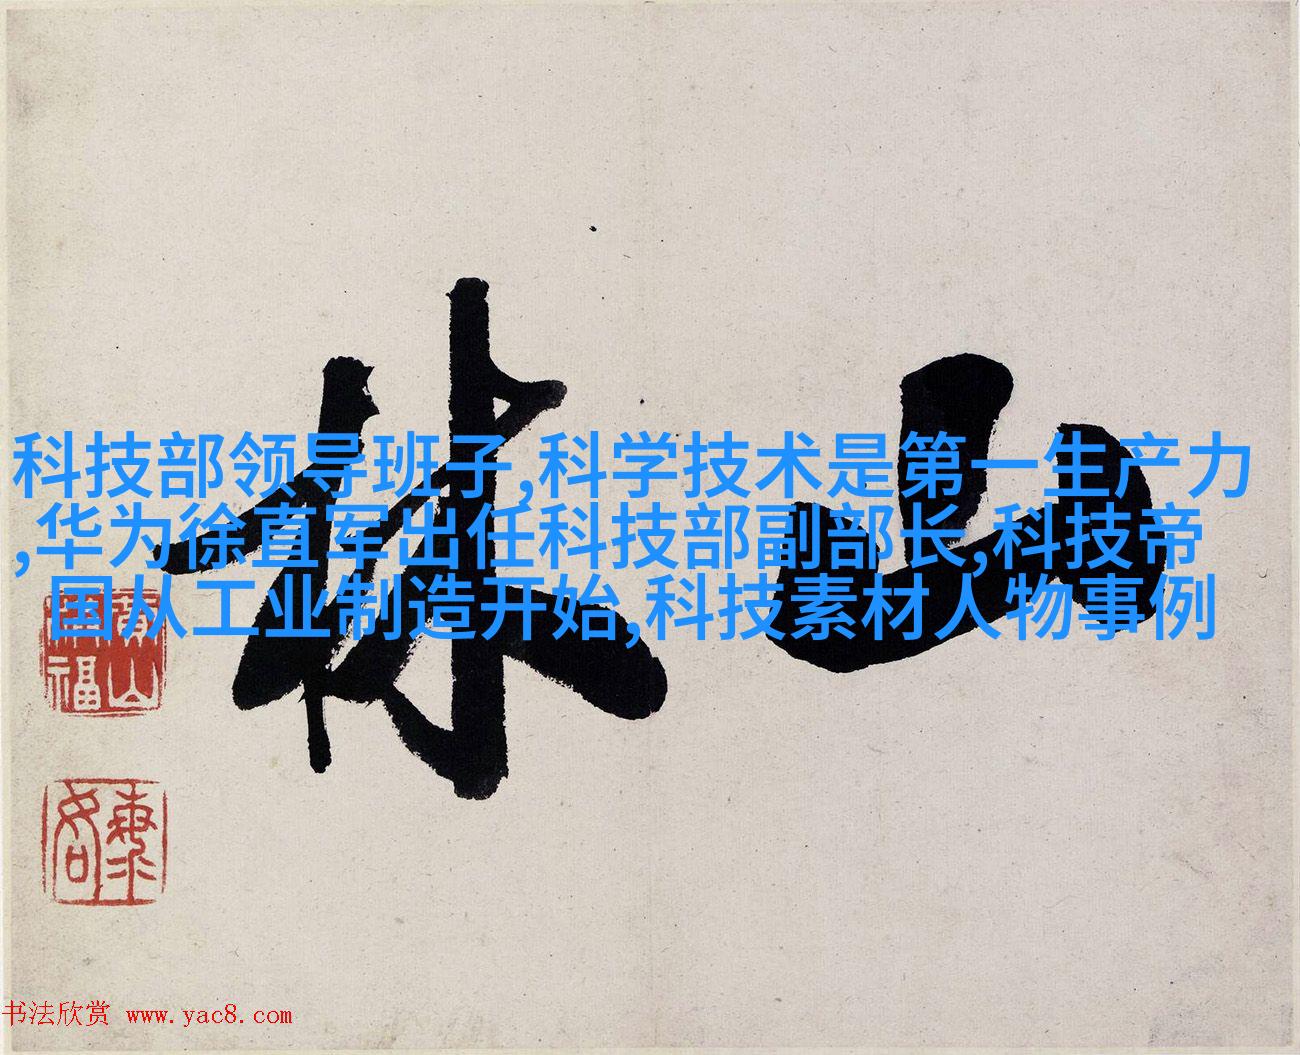 山林
科技部领导班子,科学技术是第一生产力
,华为徐直军出任科技部副部长,科技帝
国从工业制造开始,科技素材人物事例
书法欣赏 www.yac8.com